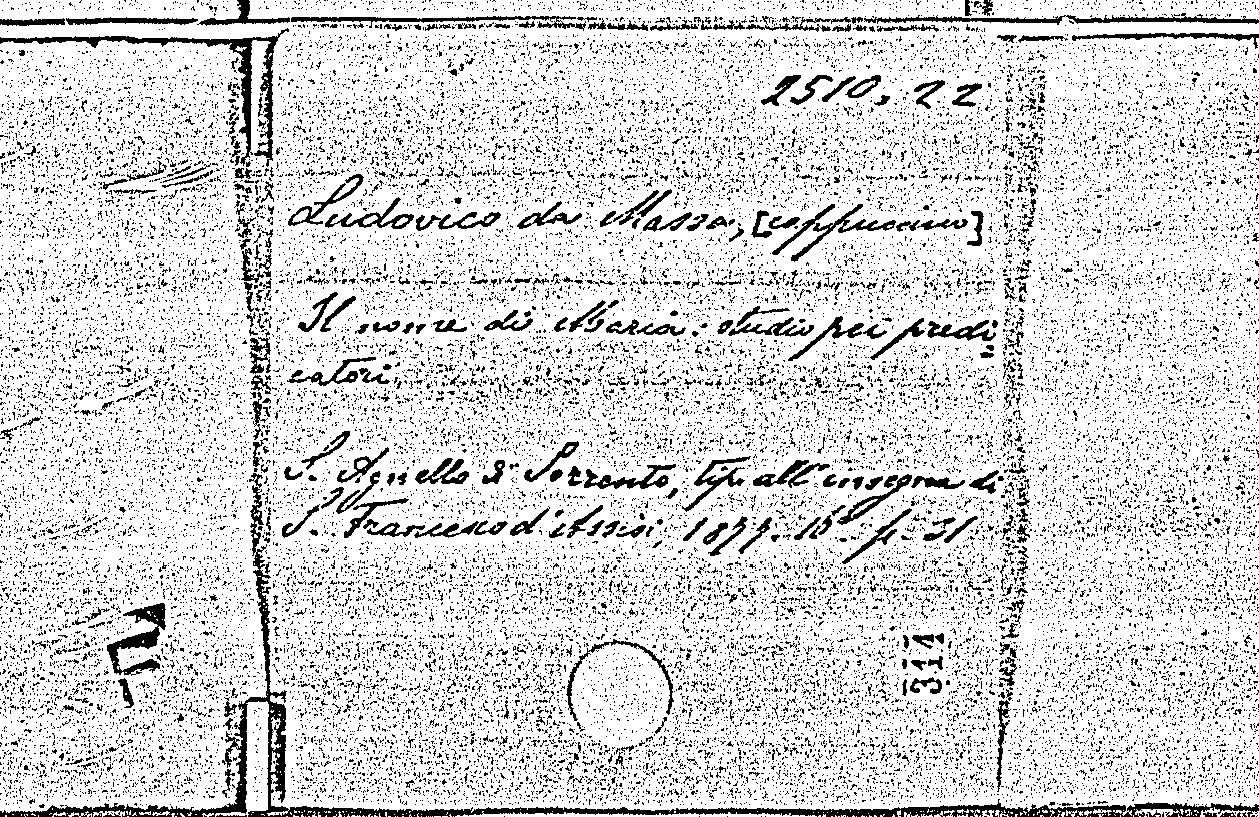 2510, 22
Ludovico da Massa, [cappuccino]
Il nome di Maria: studio pei predi
catori.
S. Agnello di Sorrento, tip. all' insegna di
S. Francesco d'Assisi, 1877. 16° p. 31
314